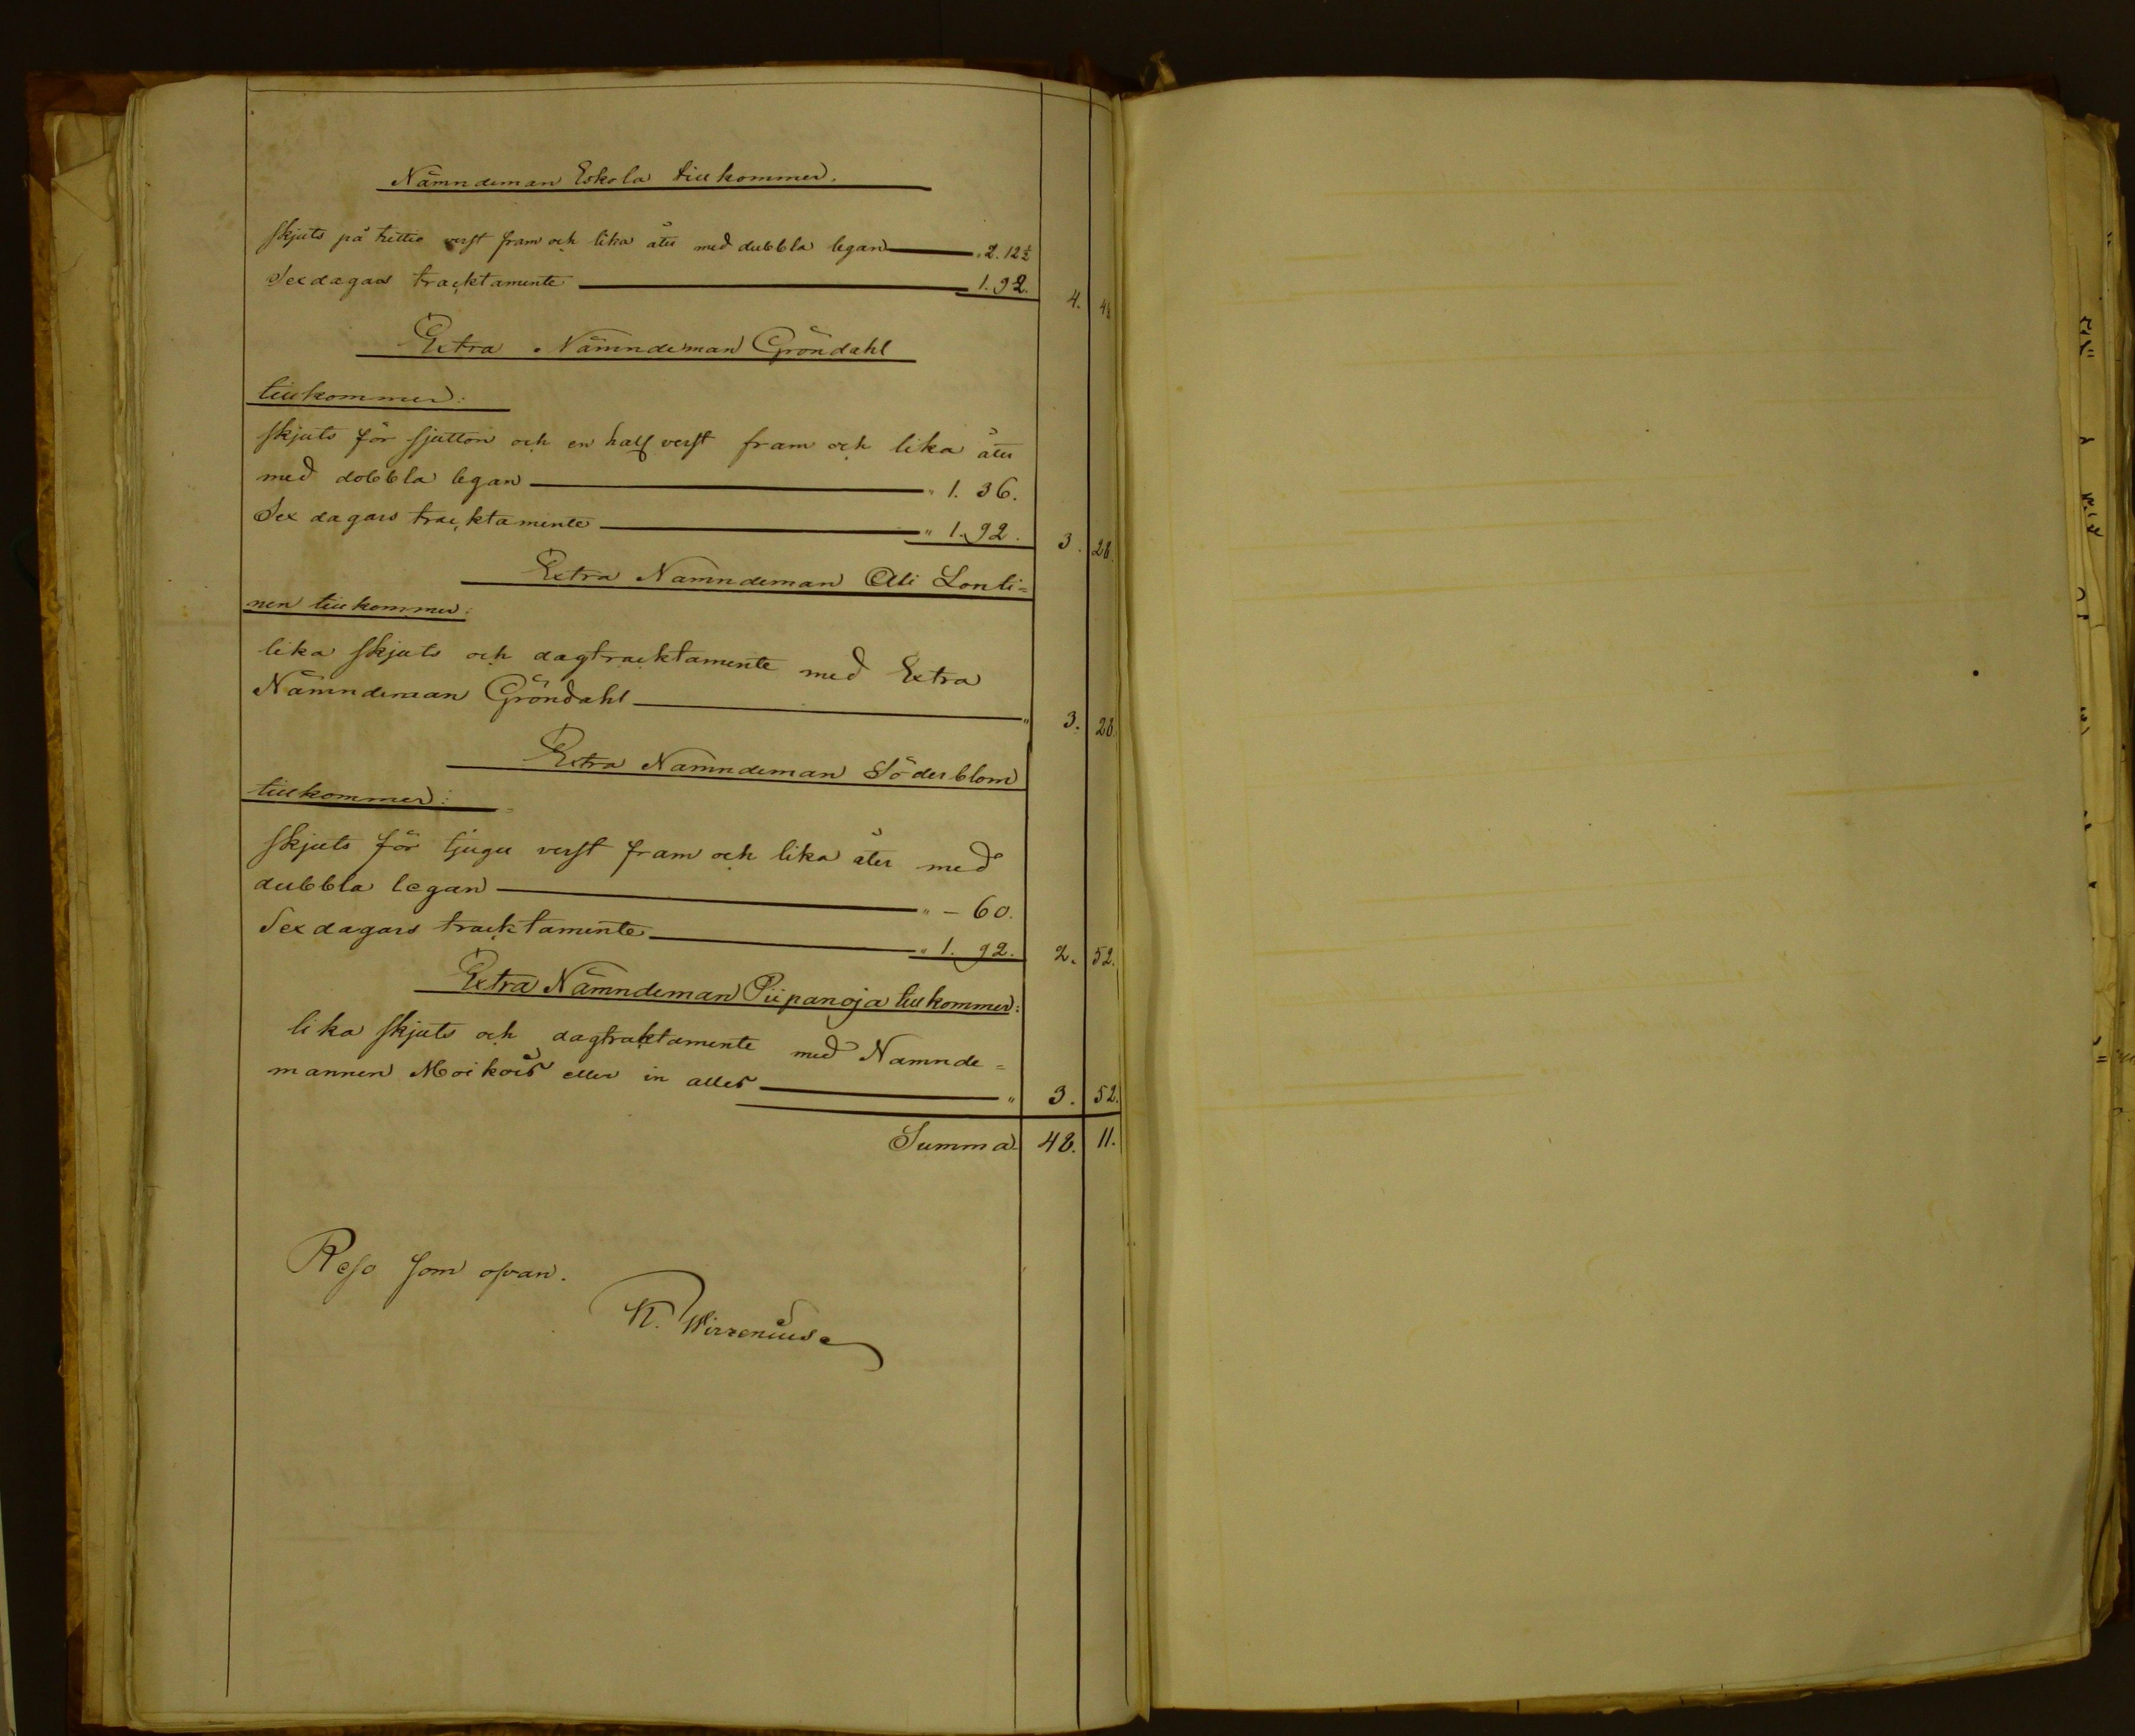 Nämndeman Eskola tillkommer.
skjuts på trettio verst fram och lika åter med dubbla legan " 2. 12½
Sex dagars tracktamente 1. 92. 4. 4½
Extra Nämndeman Gröndahl
tillkommer:
skjuts för sjutton och en half verst fram och lika åter
med dobbla legan " 1. 36.
Sex dagars tracktamente " 1. 92. 3. 28.
Extra Nämndeman Olli Lonti=
nen tillkommer:
lika skjuts och dagtracktamente med Extra
Nämndeman Gröndahl " 3. 28.
Extra Nämndeman Söderblom
tillkommer:
skjuts för tjugu verst fram och lika åter med
dubbla legan " – 60.
Sex dagars tracktamente " 1. 92. 2. 52.
Extra Nämndeman Piipanoja tillkommer:
lika skjuts och dagtraktamente med Nämnde=
mannen Moikois eller in alles " 3. 52.
Summa 48. 11.
Reso som ofvan.
K. Wirzenius